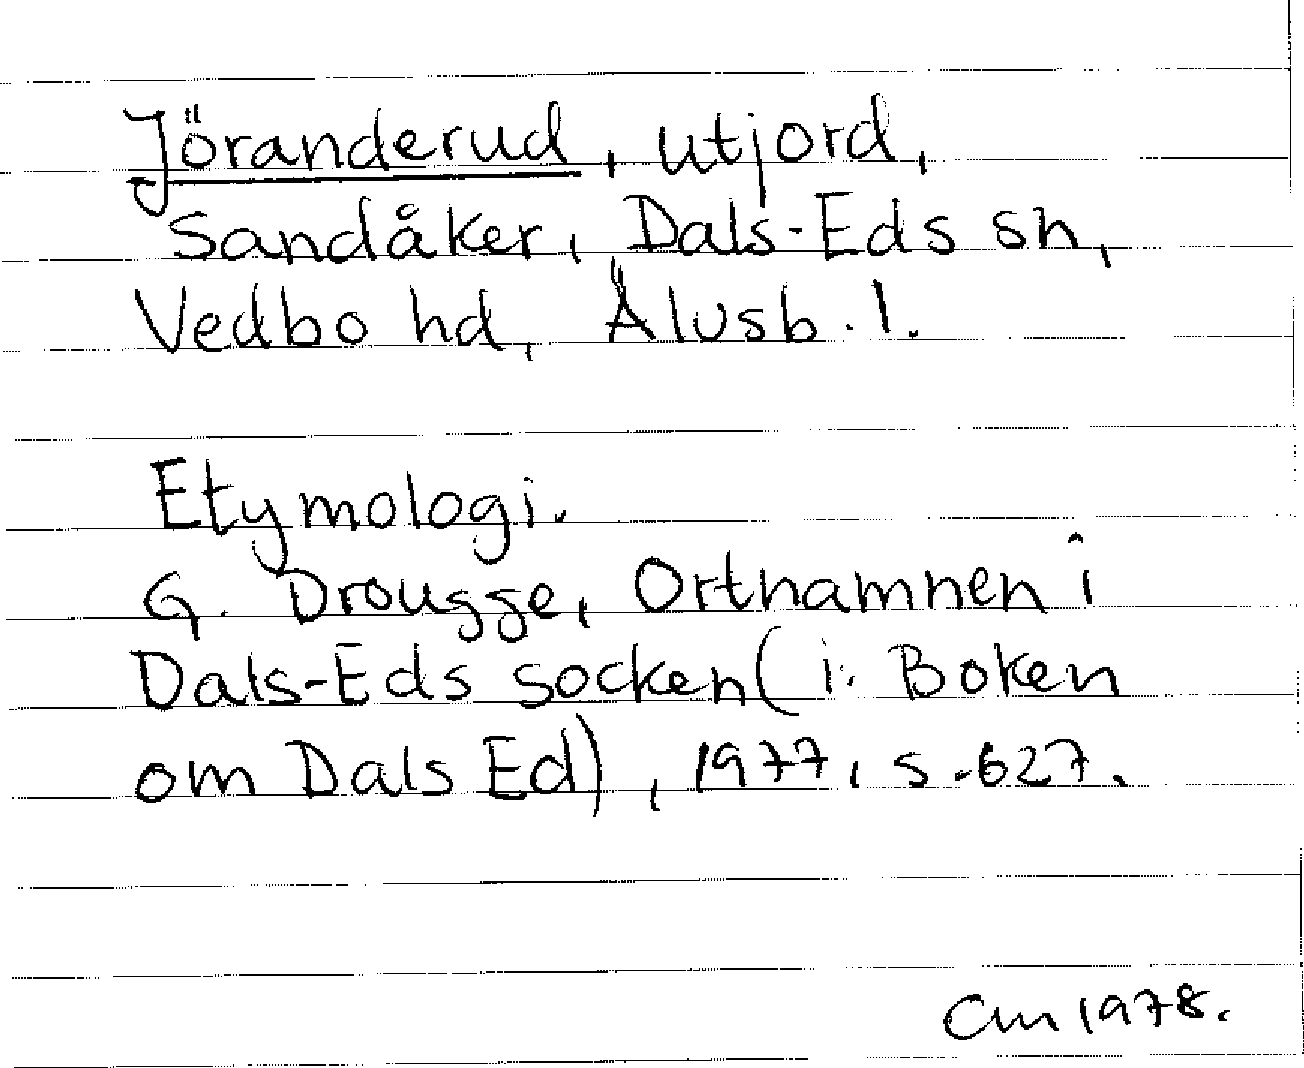 Jöranderud, utjord,
Sandåker, Dals-Eds sn,
Vedbo hd, Älvsb. l.
Etymologi.
G. Drougge, Ortnamnen i
Dals-Eds socken (i: Boken
om Dals Ed), 1977, s. 627.
Cm 1978.